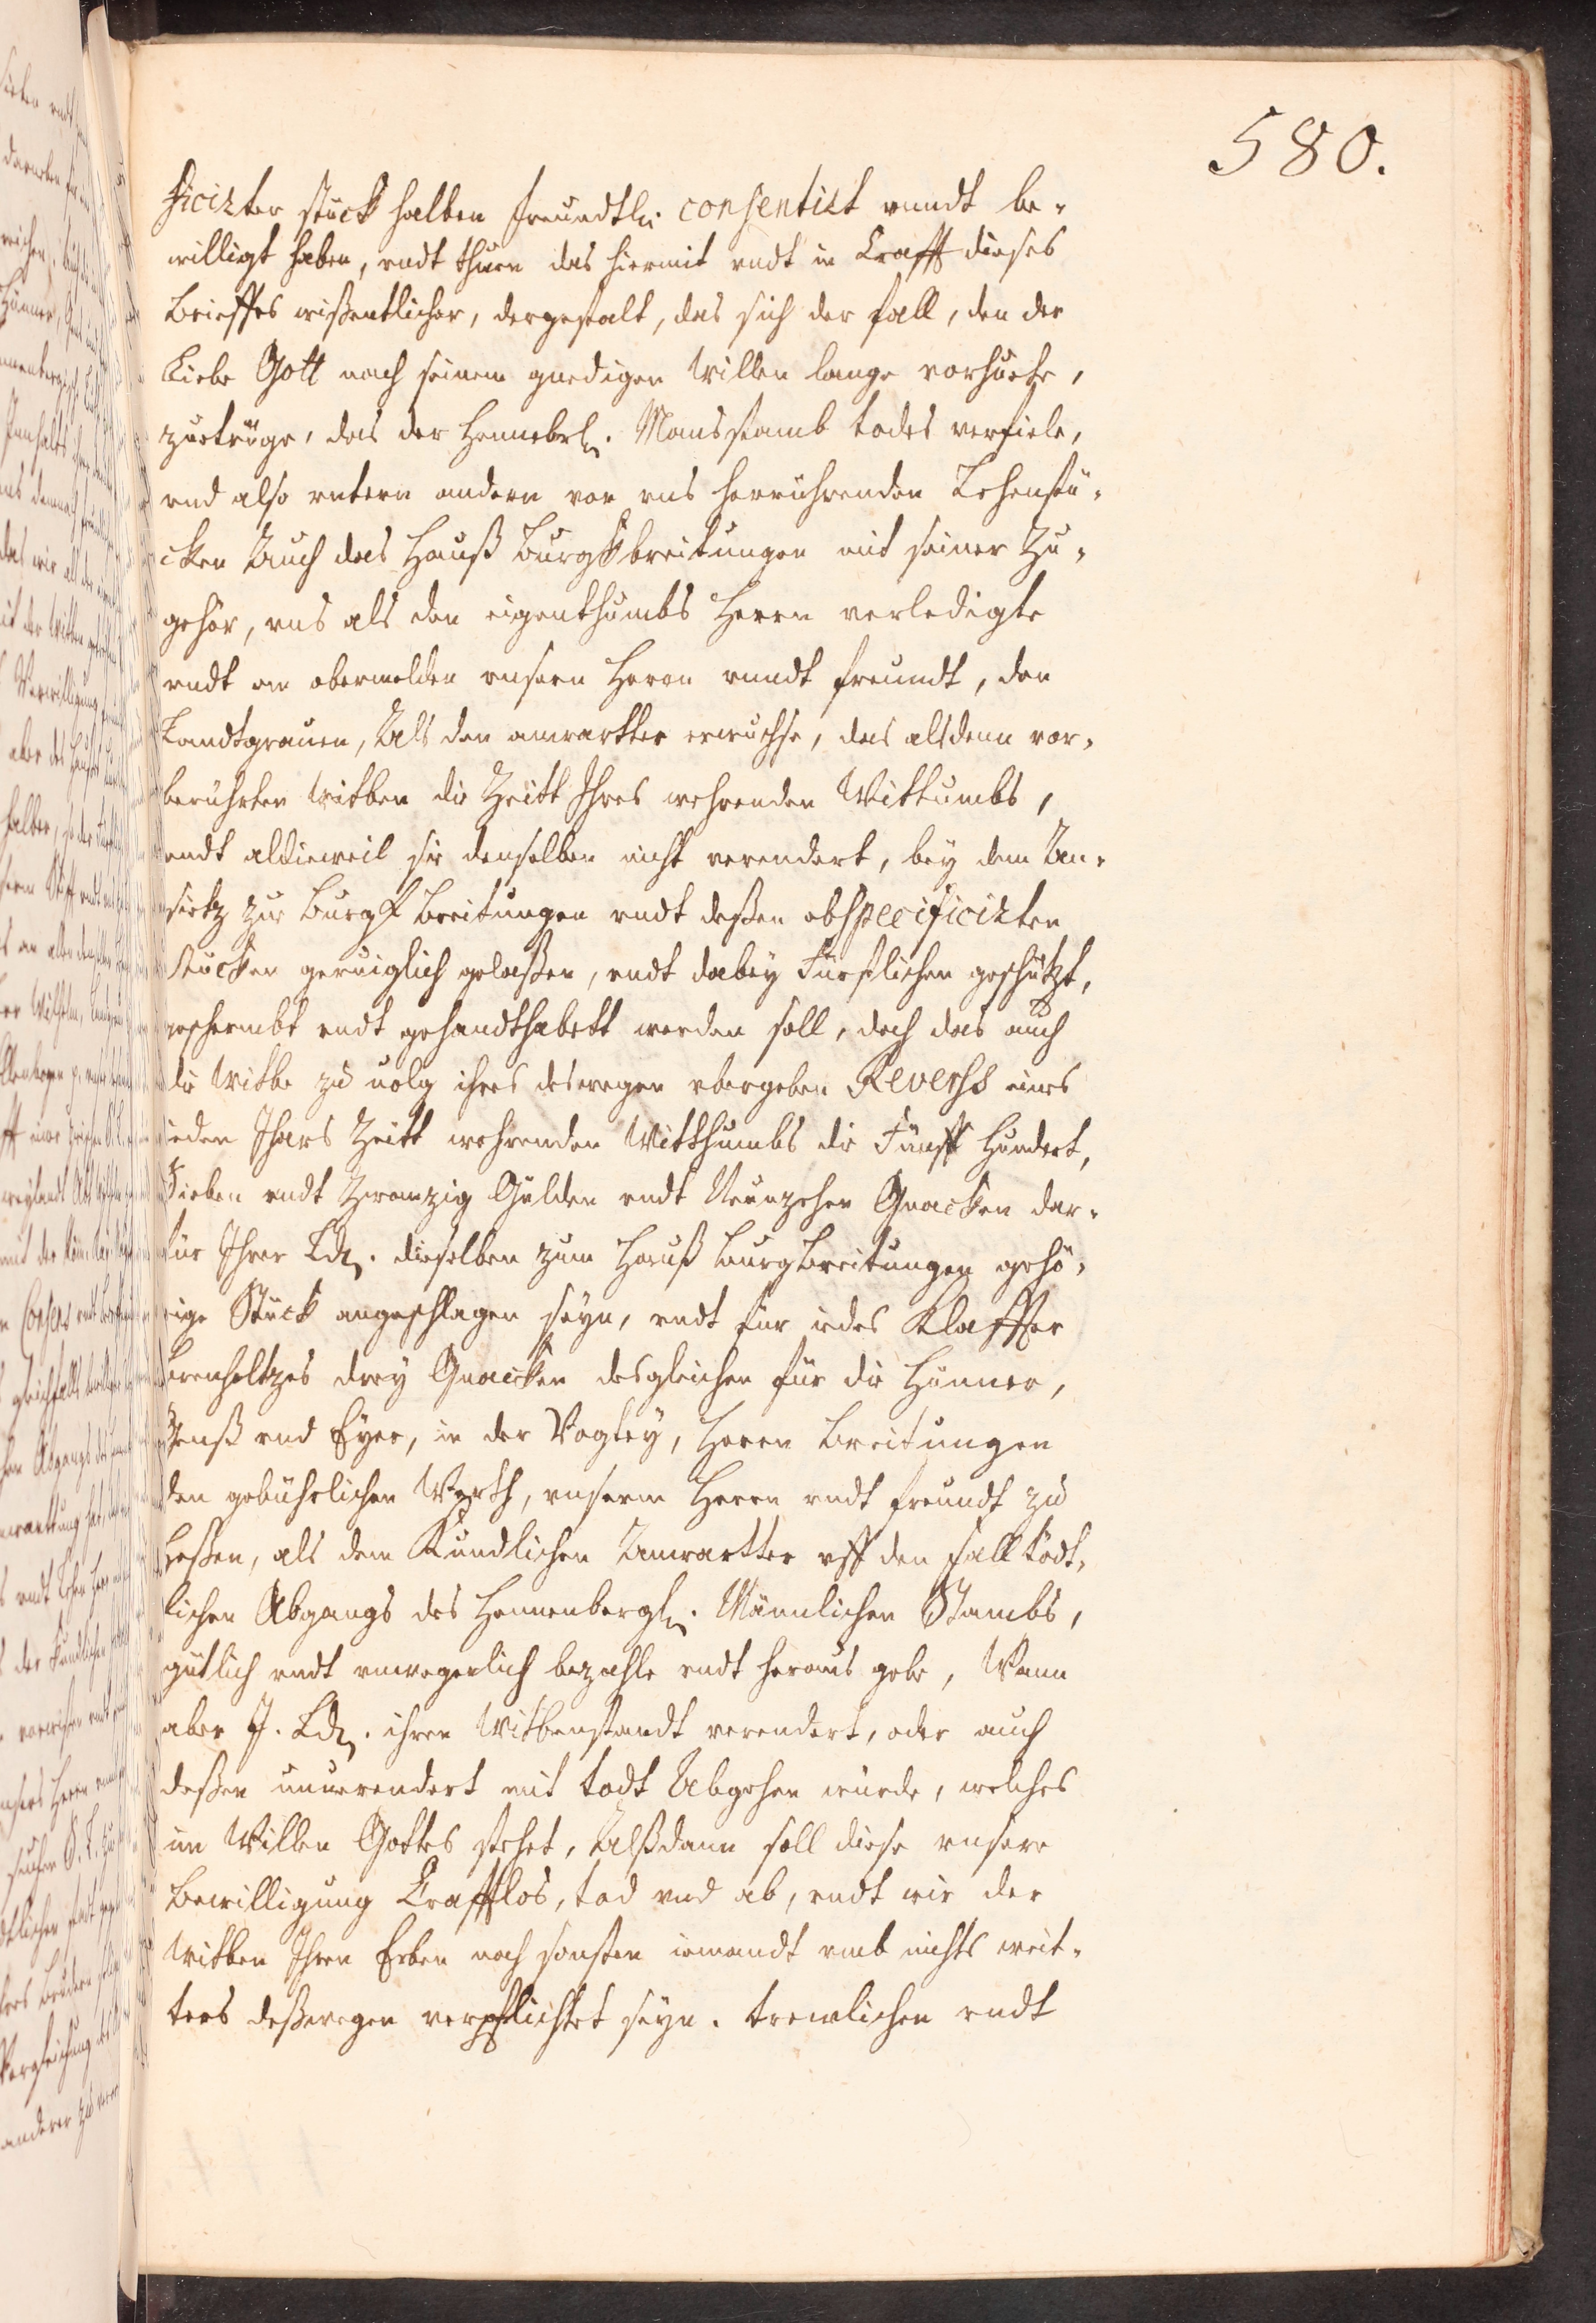 580.
ficirter stuck halben freundtl. consentirt vundt be-
willigt haben, vndt thuen das hiermit vndt in Crafft dieses
Brieffes wißentlicher, dergestalt, das sich der fall, den der
Liebe Gott nach seinem gnedigen Willen lange vorhuete,
zuetrüge, das der Hennebl. Mansstamb todes verfiele,
vnd also vntern andern von vns herrührenden Lehenstü-
cken Auch das Hauß Burgkbreitungen mit seiner Zu-
gehör, vns als den eigenthumbs Herrn verledigte
vndt an obermelden vnsern Herrn vundt freundt, den
Landtgrauen, Als den anwartter erwuchse, das alsdenn vor-
berührten Witben die Zeitt Ihres wehrenden Wittumbs,
vndt aldieweil sie denselben nicht verendert, bey dem An-
sietz zur Burgk Breitungen vndt deßen obspecificirten
stücken geruiglich gelaßen, vndt dabey Fürstlichen geschützt,
geschermbt vndt gehandthabett werden soll, doch das auch
die Witbe zu uolg ihres deswegen vbergeben Reverss eines
ieden Ihars Zeitt wehrenden Witthumbs die Fünff Hundert,
Sieben vndt Zwanzig Gulden vndt Neunzehen Gnacken dar-
für Ihrer Ld. dieselben zum Hauß Burgbreitungen gehö-
rige Stück angeschlagen seyn, vndt für iedes Klaffter
Brenholtzes drey Gnacken desgleichen für die Hünner,
Genß vnd Eyer, in der Vogtey, Herrn Breitungen
den gebührlichen Werth, vnserm Herrn vndt freundt zu
Heßen, als dem Kundlichen Anwartter vff den fall tödt-
lichen Abgangs des Hennenbergl. Männlichen Stambs,
gütlich vndt vnwegerlich bezahle vndt heraus gebe, Wann
aber J. Ld. ihren Witbenstandt verendert, oder auch
deßen unuerendert mit todt Abgehen würde, welches
im Willen Gottes stehet, Alßdann soll diese vnsere
Bewilligung Krafftlos, tod vnd ab, vndt wir der
Witben Ihren Erben noch sonsten iemandt vmb nichts weit-
ters deßwegen verpflichtet seyn. trewlichen vndt